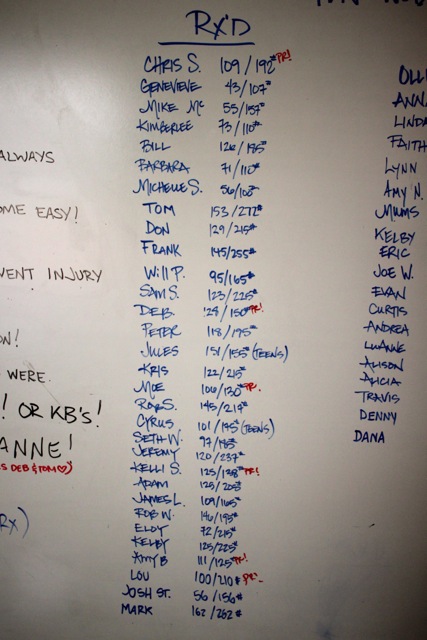 RX'D
CHRIS S. 109/192# PR!
GENEVIEVE 43/107#
MIKE MC 55/157#
KIMBERLEE 73/110#
BILL 126/185#
BARBARA 71/110#
MICHELLE S. 56/103#
TOM 153/272#
DON 129/215#
FRANK 145/255#
WILL P. 95/165#
SAM S. 123/225#
DEB. 128/150# PR!
PETER 118/195#
JULES 151/155# (TEENS)
KRIS 122/215#
MOE 106/130# PR.
ROB S. 145/219#
CYRUS 101/195# (TEENS)
SETH W. 97/185#
JEREMY 120/237#
KELLI S. 125/138# PR!
ADAM 125/205#
JAMES L. 109/165#
ROB W. 146/195#
ELOY 72/215#
KELBY 125/225#
AMY B 111/125# PR!
LOU 100/210# PR!
JOSH ST. 56/156#
MARK 162/262#
ALWAYS
OME EASY!
VENT INJURY
ON!
WERE.
! OR KB'S!
ANNE!
S DEB & TOM ♡)
RX)
OLLI
ANNA
LINDA
FAITH
LYNN
AMY N.
MIMMS
KELBY
ERIC
JOE W.
EVAN
CURTIS
ANDREA
LUANNE
ALISON
ALICIA
TRAVIS
DENNY
DANA